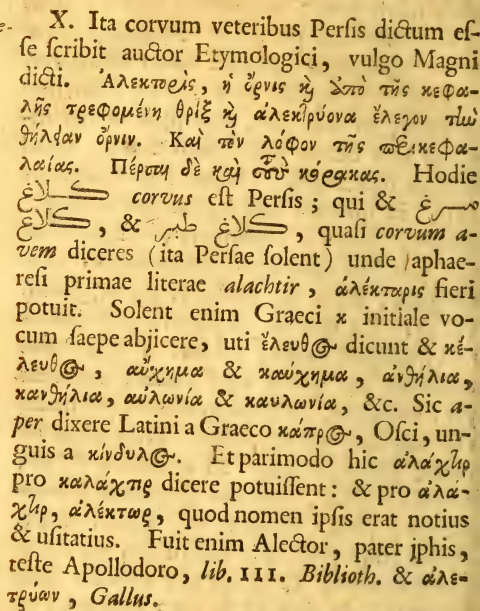 X. Ita corvum veteribus Persis dictum es-
se scribit auctor Etymologici, vulgo Magni
dicti. Ἀλεκτορὶς, ἡ ὄρνις κὶ ἀπὸ τῆς κεφα-
λῆς τρεφομένη θρὶξ κὶ ἀλεκτρύονα ἔλεγον τὴν
θήλειαν ὄρνιν. Καὶ τὸν λόφον τῆς περικεφα-
λαίας. Πέρσαι δὲ καὶ τοὺς κόρακας. Hodie
كلاغ corvus est Persis; qui & مرغ
كلاغ, & كلاغ طير, quasi corvum a-
vem diceres (ita Persae solent) unde aphae-
resi primae literae alachtir, ἀλέκταρις fieri
potuit. Solent enim Graeci κ initiale vo-
cum saepe abjicere, uti ἔλευθος dicunt & κέ-
λευθος, αὔχημα & καύχημα, ἀνθήλια,
κανθήλια, αὐλωνία & καυλωνία, &c. Sic a-
per dixere Latini a Graeco κάπρος, Osci, un-
guis a κίνδυλος. Et parimodo hic ἀλάχτηρ
pro καλάχτηρ dicere potuissent: & pro ἀλά-
χτηρ, ἀλέκτωρ, quod nomen ipsis erat notius
& usitatius. Fuit enim Alector, pater jphis,
teste Apollodoro, lib. III. Biblioth. & ἀλε-
τρύων, Gallus.